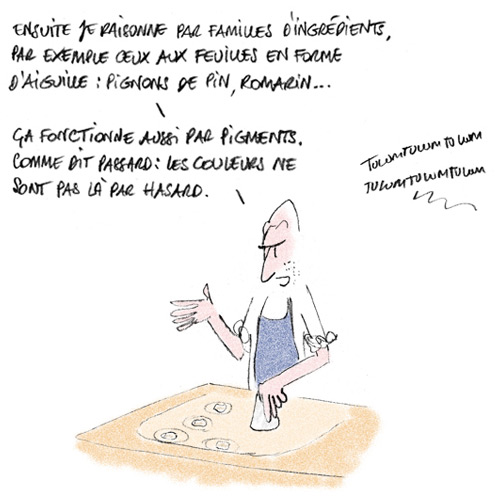 ENSUITE JE RAISONNE PAR FAMILLES D'INGRÉDIENTS,
PAR EXEMPLE CEUX AUX FEUILLES EN FORME
D'AIGUILLE : PIGNONS DE PIN, ROMARIN...
ÇA FONCTIONNE AUSSI PAR PIGMENTS.
COMME DIT PASSARD : LES COULEURS NE
SONT PAS LÀ PAR HASARD.
TUWMTUWMTUWM
TUWMTUWMTUWM